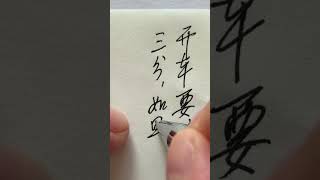 开车要
三分，如